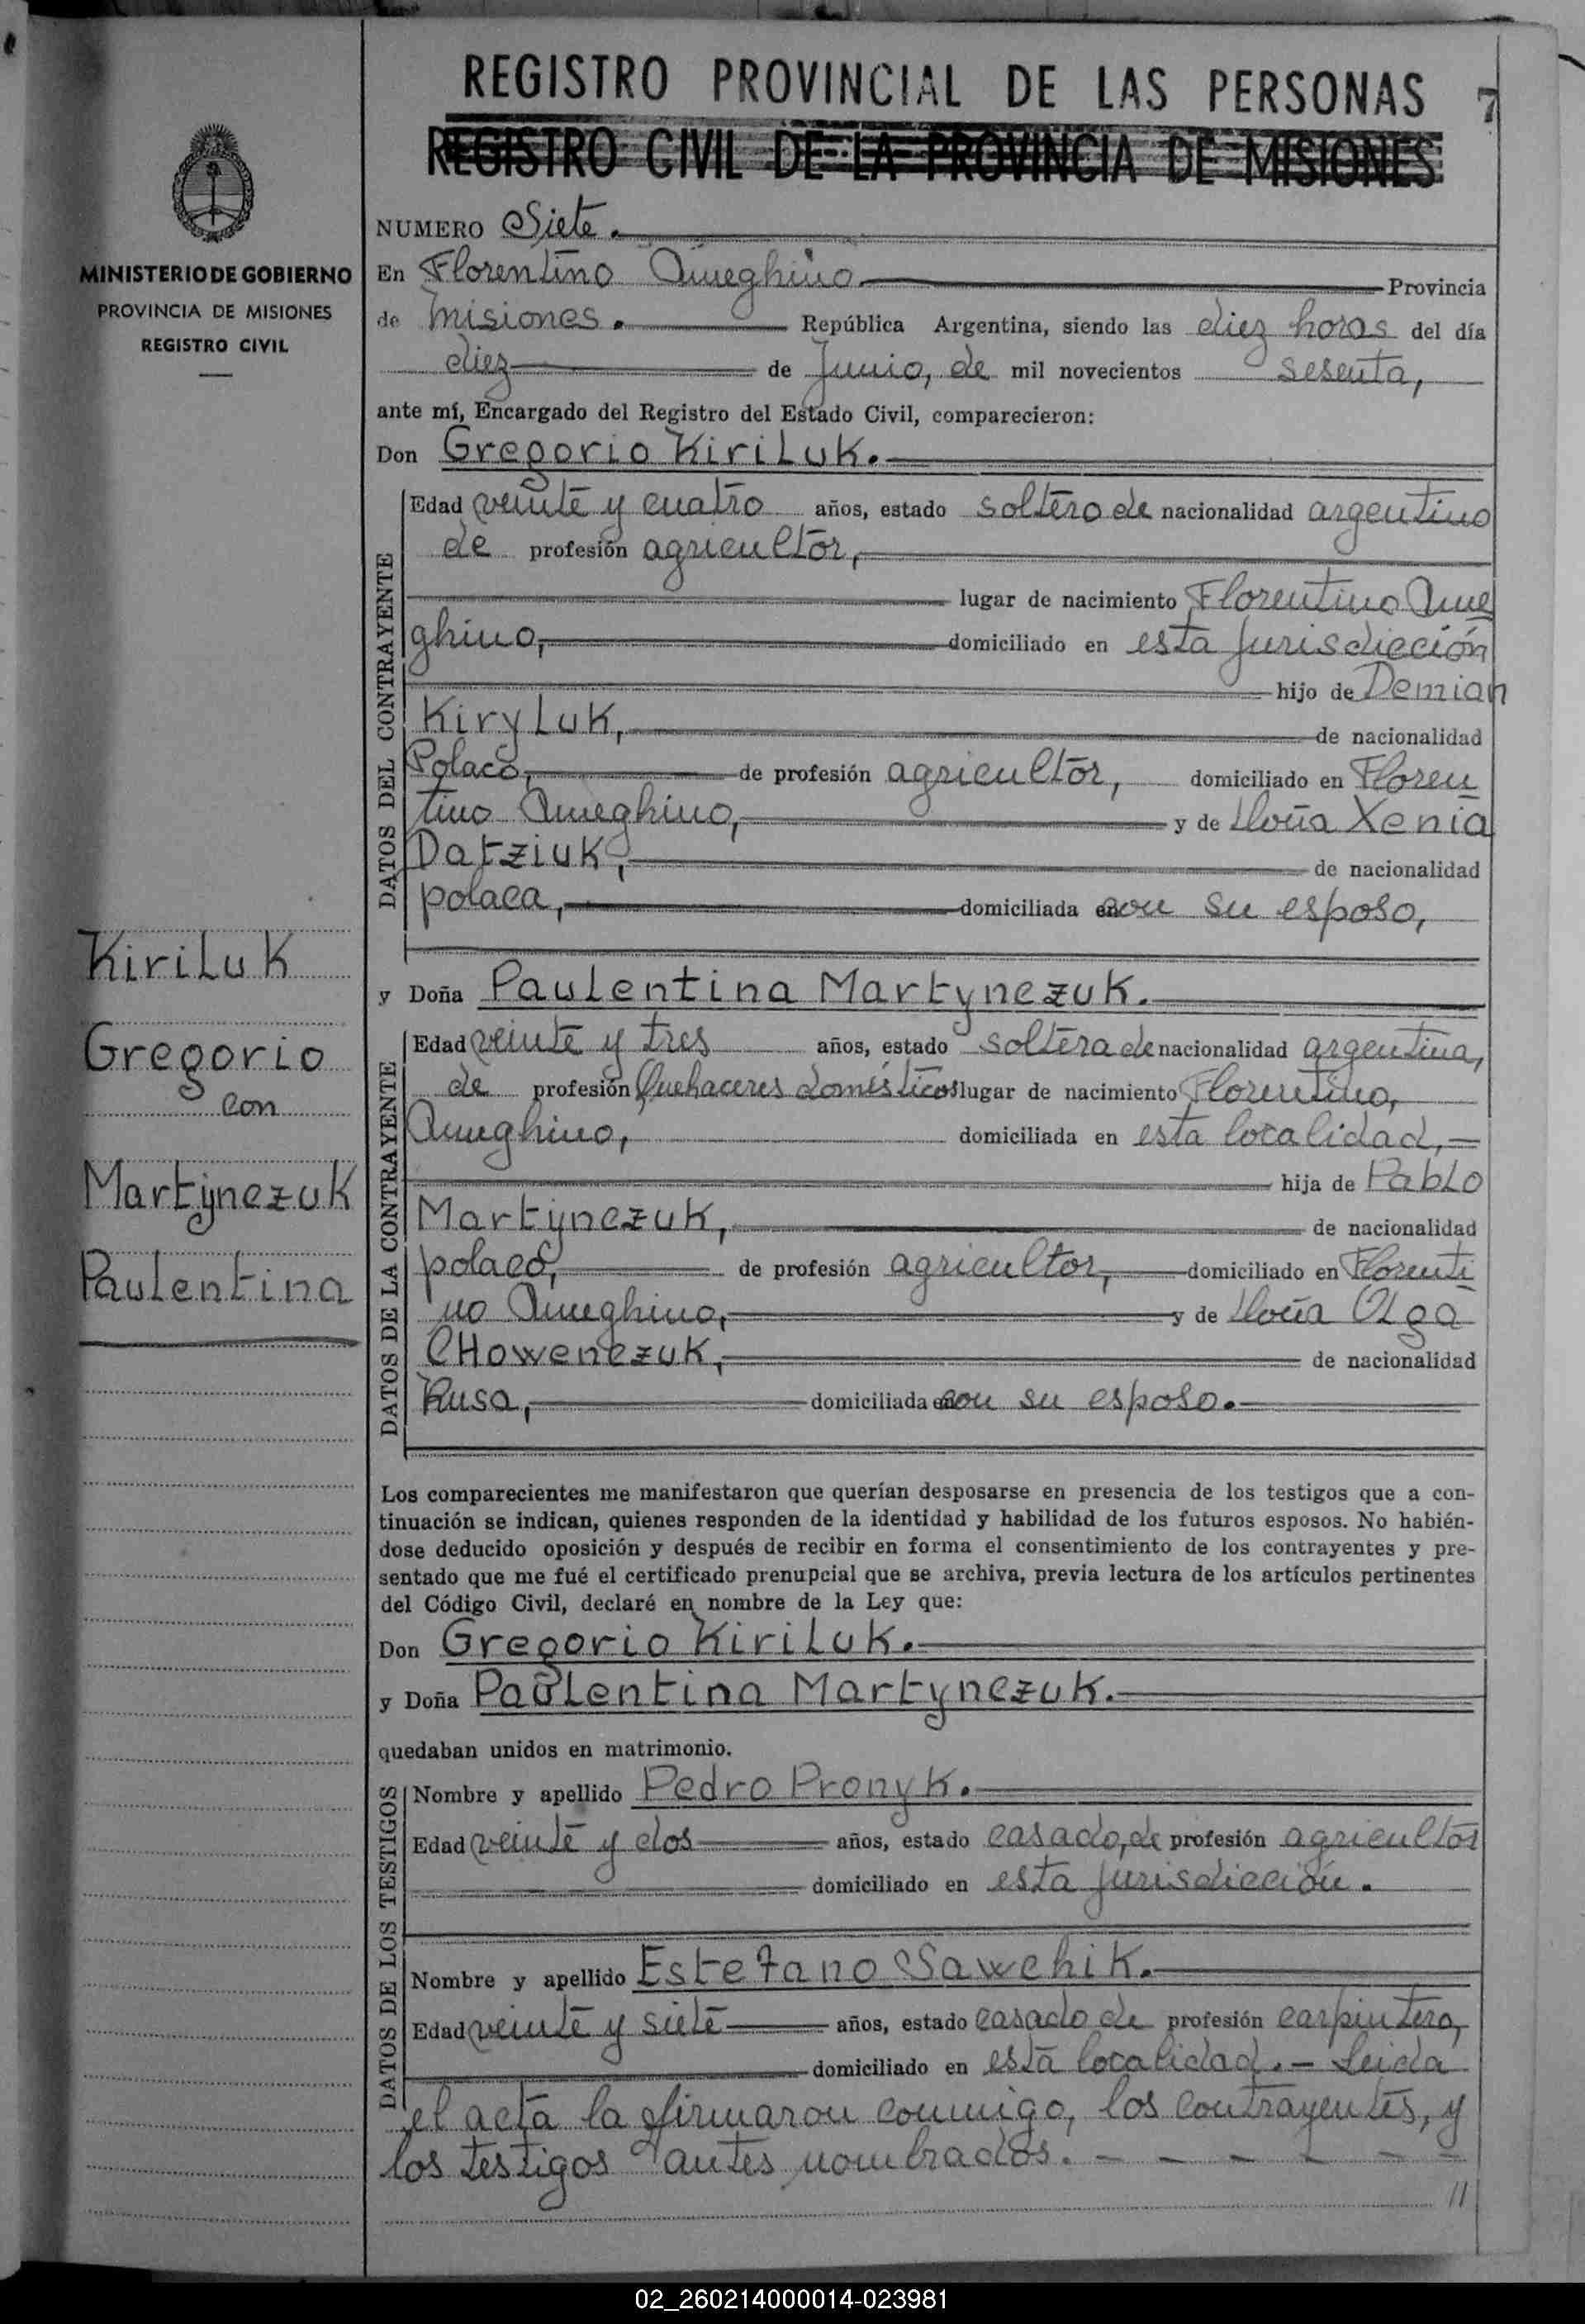 REGISTRO PROVINCIAL DE LAS PERSONAS 7
REGISTRO CIVIL DE LA PROVINCIA DE MISIONES
MINISTERIO DE GOBIERNO
PROVINCIA DE MISIONES
REGISTRO CIVIL
Kiriluk
Gregorio
con
Martynczuk
Paulentina
NUMERO Siete.
En Florentino Ameghino Provincia
de Misiones. República Argentina, siendo las diez horas del día
diez de Junio, de mil novecientos sesenta,
ante mí, Encargado del Registro del Estado Civil, comparecieron:
Don Gregorio Kiriluk.
DATOS DEL CONTRAYENTE
Edad veinte y cuatro años, estado soltero de nacionalidad argentino
de profesión agricultor,
lugar de nacimiento Florentino Ame
ghino, domiciliado en esta jurisdicción
hijo de Demian
Kiryluk, de nacionalidad
Polaco, de profesión agricultor, domiciliado en Floren
tino Ameghino, y de Doña Xenia
Datziuk, de nacionalidad
polaca, domiciliada en con su esposo,
y Doña Paulentina Martynczuk.
DATOS DE LA CONTRAYENTE
Edad veinte y tres años, estado soltera de nacionalidad argentina,
de profesión Quehaceres domésticos lugar de nacimiento Florentino,
Ameghino, domiciliada en esta localidad,
hija de Pablo
Martynczuk, de nacionalidad
polaco, de profesión agricultor, domiciliado en Florenti
no Ameghino, y de Doña Olga
CHowenczuk, de nacionalidad
Rusa, domiciliada en con su esposo.
Los comparecientes me manifestaron que querían desposarse en presencia de los testigos que a con-
tinuación se indican, quienes responden de la identidad y habilidad de los futuros esposos. No habién-
dose deducido oposición y después de recibir en forma el consentimiento de los contrayentes y pre-
sentado que me fué el certificado prenupcial que se archiva, previa lectura de los artículos pertinentes
del Código Civil, declaré en nombre de la Ley que:
Don Gregorio Kiriluk.
y Doña Paulentina Martynczuk.
quedaban unidos en matrimonio.
DATOS DE LOS TESTIGOS
Nombre y apellido Pedro Pronyk.
Edad veinte y dos años, estado casado, de profesión agricultor
domiciliado en esta jurisdicción.
Nombre y apellido Estefano Sawchik.
Edad veinte y siete años, estado casado de profesión carpintero,
domiciliado en esta localidad.- Leida
el acta la firmaron conmigo, los contrayentes, y
los testigos antes nombrados. - - - - - -
//
02_260214000014-023981